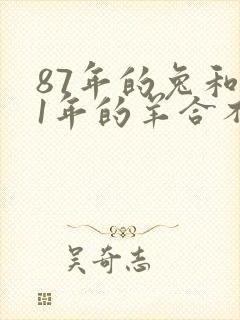 87年的兔和
1年的羊合不
吴奇志